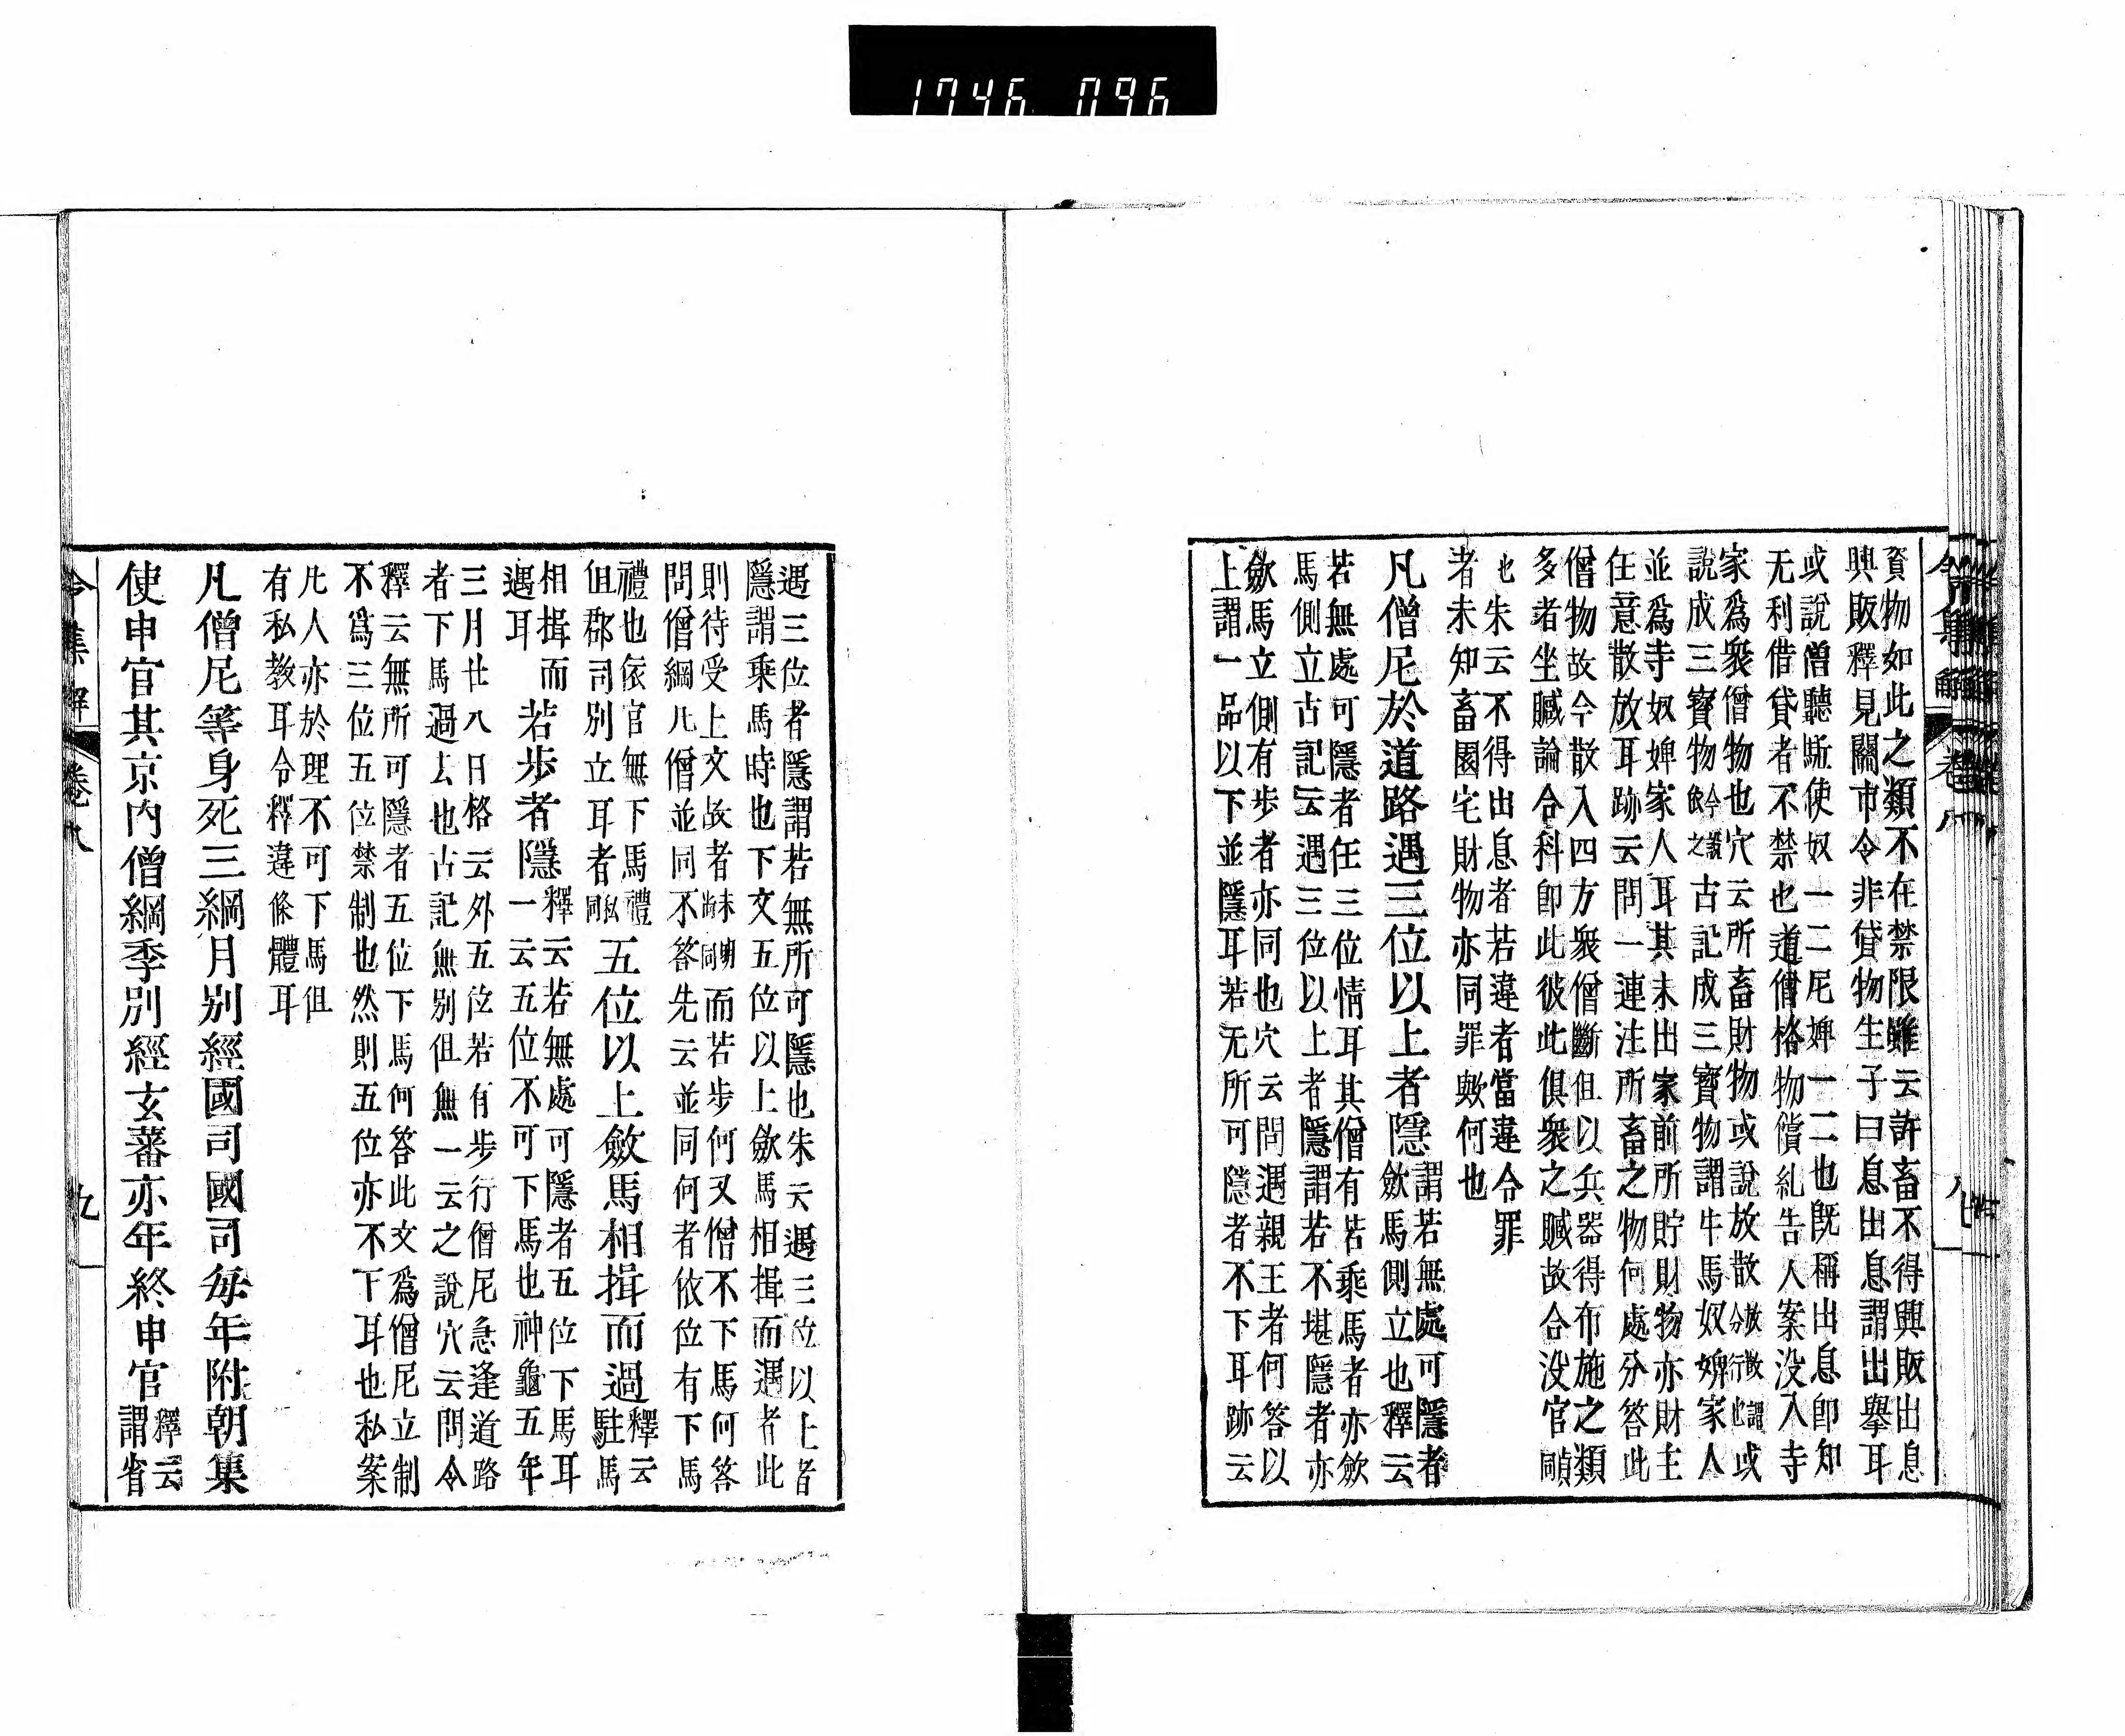 1746 096
令集解 卷八
資物如此之類不在禁限雖云許畜不得興販出息
興販釋見關市令非貸物生子曰息出息謂出擧耳
或說僧聽駈使奴一二尼婢一二也旣稱出息卽知
无利借貸者不禁也道僧格物償糺告人案没入寺
家爲衆僧物也穴云所畜財物或說放散
或
說成三寶物
古記成三寶物謂牛馬奴婢家人
並爲寺奴婢家人耳其未出家前所貯財物亦財主
任意散放耳跡云問一連注所畜之物何處分答此
僧物故今散入四方衆僧斷但以兵器得布施之類
多者坐贓論合科卽此彼此俱衆之贓故合没官
也朱云不得出息者若違者當違令罪
者未知畜園宅財物亦同罪歟何也
凡僧尼於道路遇三位以上者隱
謂若無處可隱者
斂馬側立也釋云
若無處可隱者任三位情耳其僧有若乘馬者亦斂
馬側立古記云遇三位以上者隱謂若不堪隱者亦
斂馬立側有步者亦同也穴云問遇親王者何答以
上謂一品以下並隱耳若无所可隱者不下耳跡云
遇三位者隱謂若無所可隱也朱云遇三位以上者
隱謂乘馬時也下文五位以上斂馬相揖而遇者此
則待受上文故者
而若步何又僧不下馬何答
問僧綱凡僧並同不答先云並同何者依位有下馬
禮也依官無下馬禮
但郡司別立耳者
五位以上斂馬相揖而過
釋云
駐馬
相揖而
遇耳
若步者隱
釋云若無處可隱者五位下馬耳
一云五位不可下馬也神龜五年
三月廿八日格云外五位若有步行僧尼急逢道路
者下馬過去也古記無別但無一云之說穴云問令
釋云無所可隱者五位下馬何答此文爲僧尼立制
不爲三位五位禁制也然則五位亦不下耳也私案
凡人亦於理不可下馬但
有私教耳令釋違條體耳
凡僧尼等身死三綱月別經國司國司每年附朝集
使申官其京内僧綱季別經玄蕃亦年終申官
釋云
謂省
令集解 卷八 九